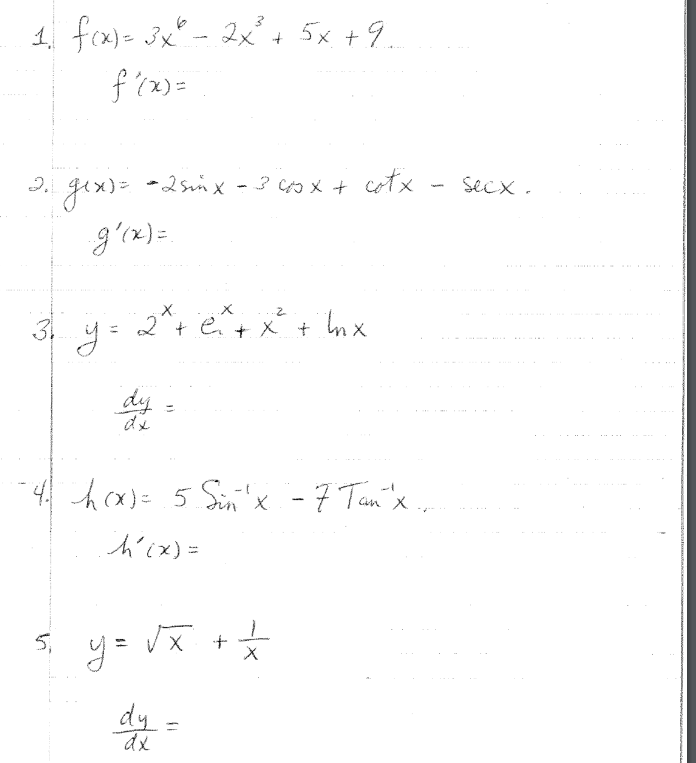 1. f(x) = 3x⁶ - 2x³ + 5x + 9.
f'(x) =
2. g(x) = -2 sin x - 3 cos x + cot x - sec x.
g'(x) =
3. y = 2ˣ + eˣ + x² + ln x
dy/dx =
4. h(x) = 5 Sin⁻¹x - 7 Tan⁻¹x.
h'(x) =
5. y = √x + 1/x
dy/dx =